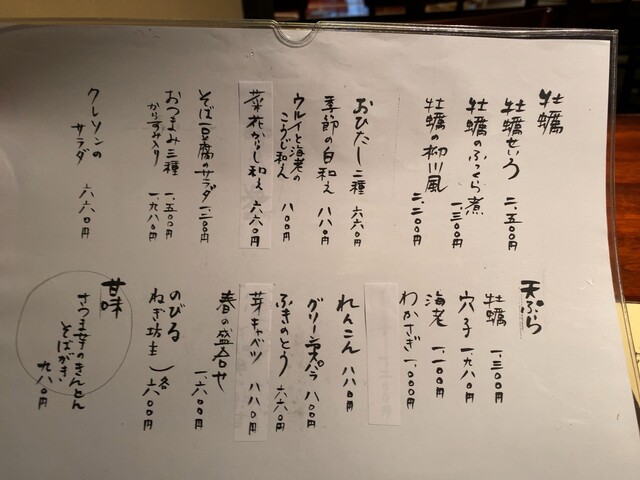 牡蠣
牡蠣せいろ 二、五〇〇円
牡蠣のふっくら煮 一、三〇〇円
牡蠣の柳川風 二、二〇〇円
おひたし二種 六六〇円
季節の白和え 八八〇円
ウルイと海老の
こうじ和え 八〇〇円
菜花からし和え 六六〇円
そば豆腐のサラダ 一、二〇〇円
おつまみ三種 一、五〇〇円
からすみ入り 一、九八〇円
クレソンの
サラダ 六六〇円
天ぷら
牡蠣 一、三〇〇円
穴子 一、九八〇円
海老 一、一〇〇円
わかさぎ 一、〇〇〇円
れんこん 八八〇円
グリーンアスパラ 八〇〇円
ふきのとう 六六〇円
芽キャベツ 八八〇円
春の盛合せ 一、六〇〇円
のびる
ねぎ坊主 各 六〇〇円
甘味
さつま芋のきんとん
そばがき 九八〇円